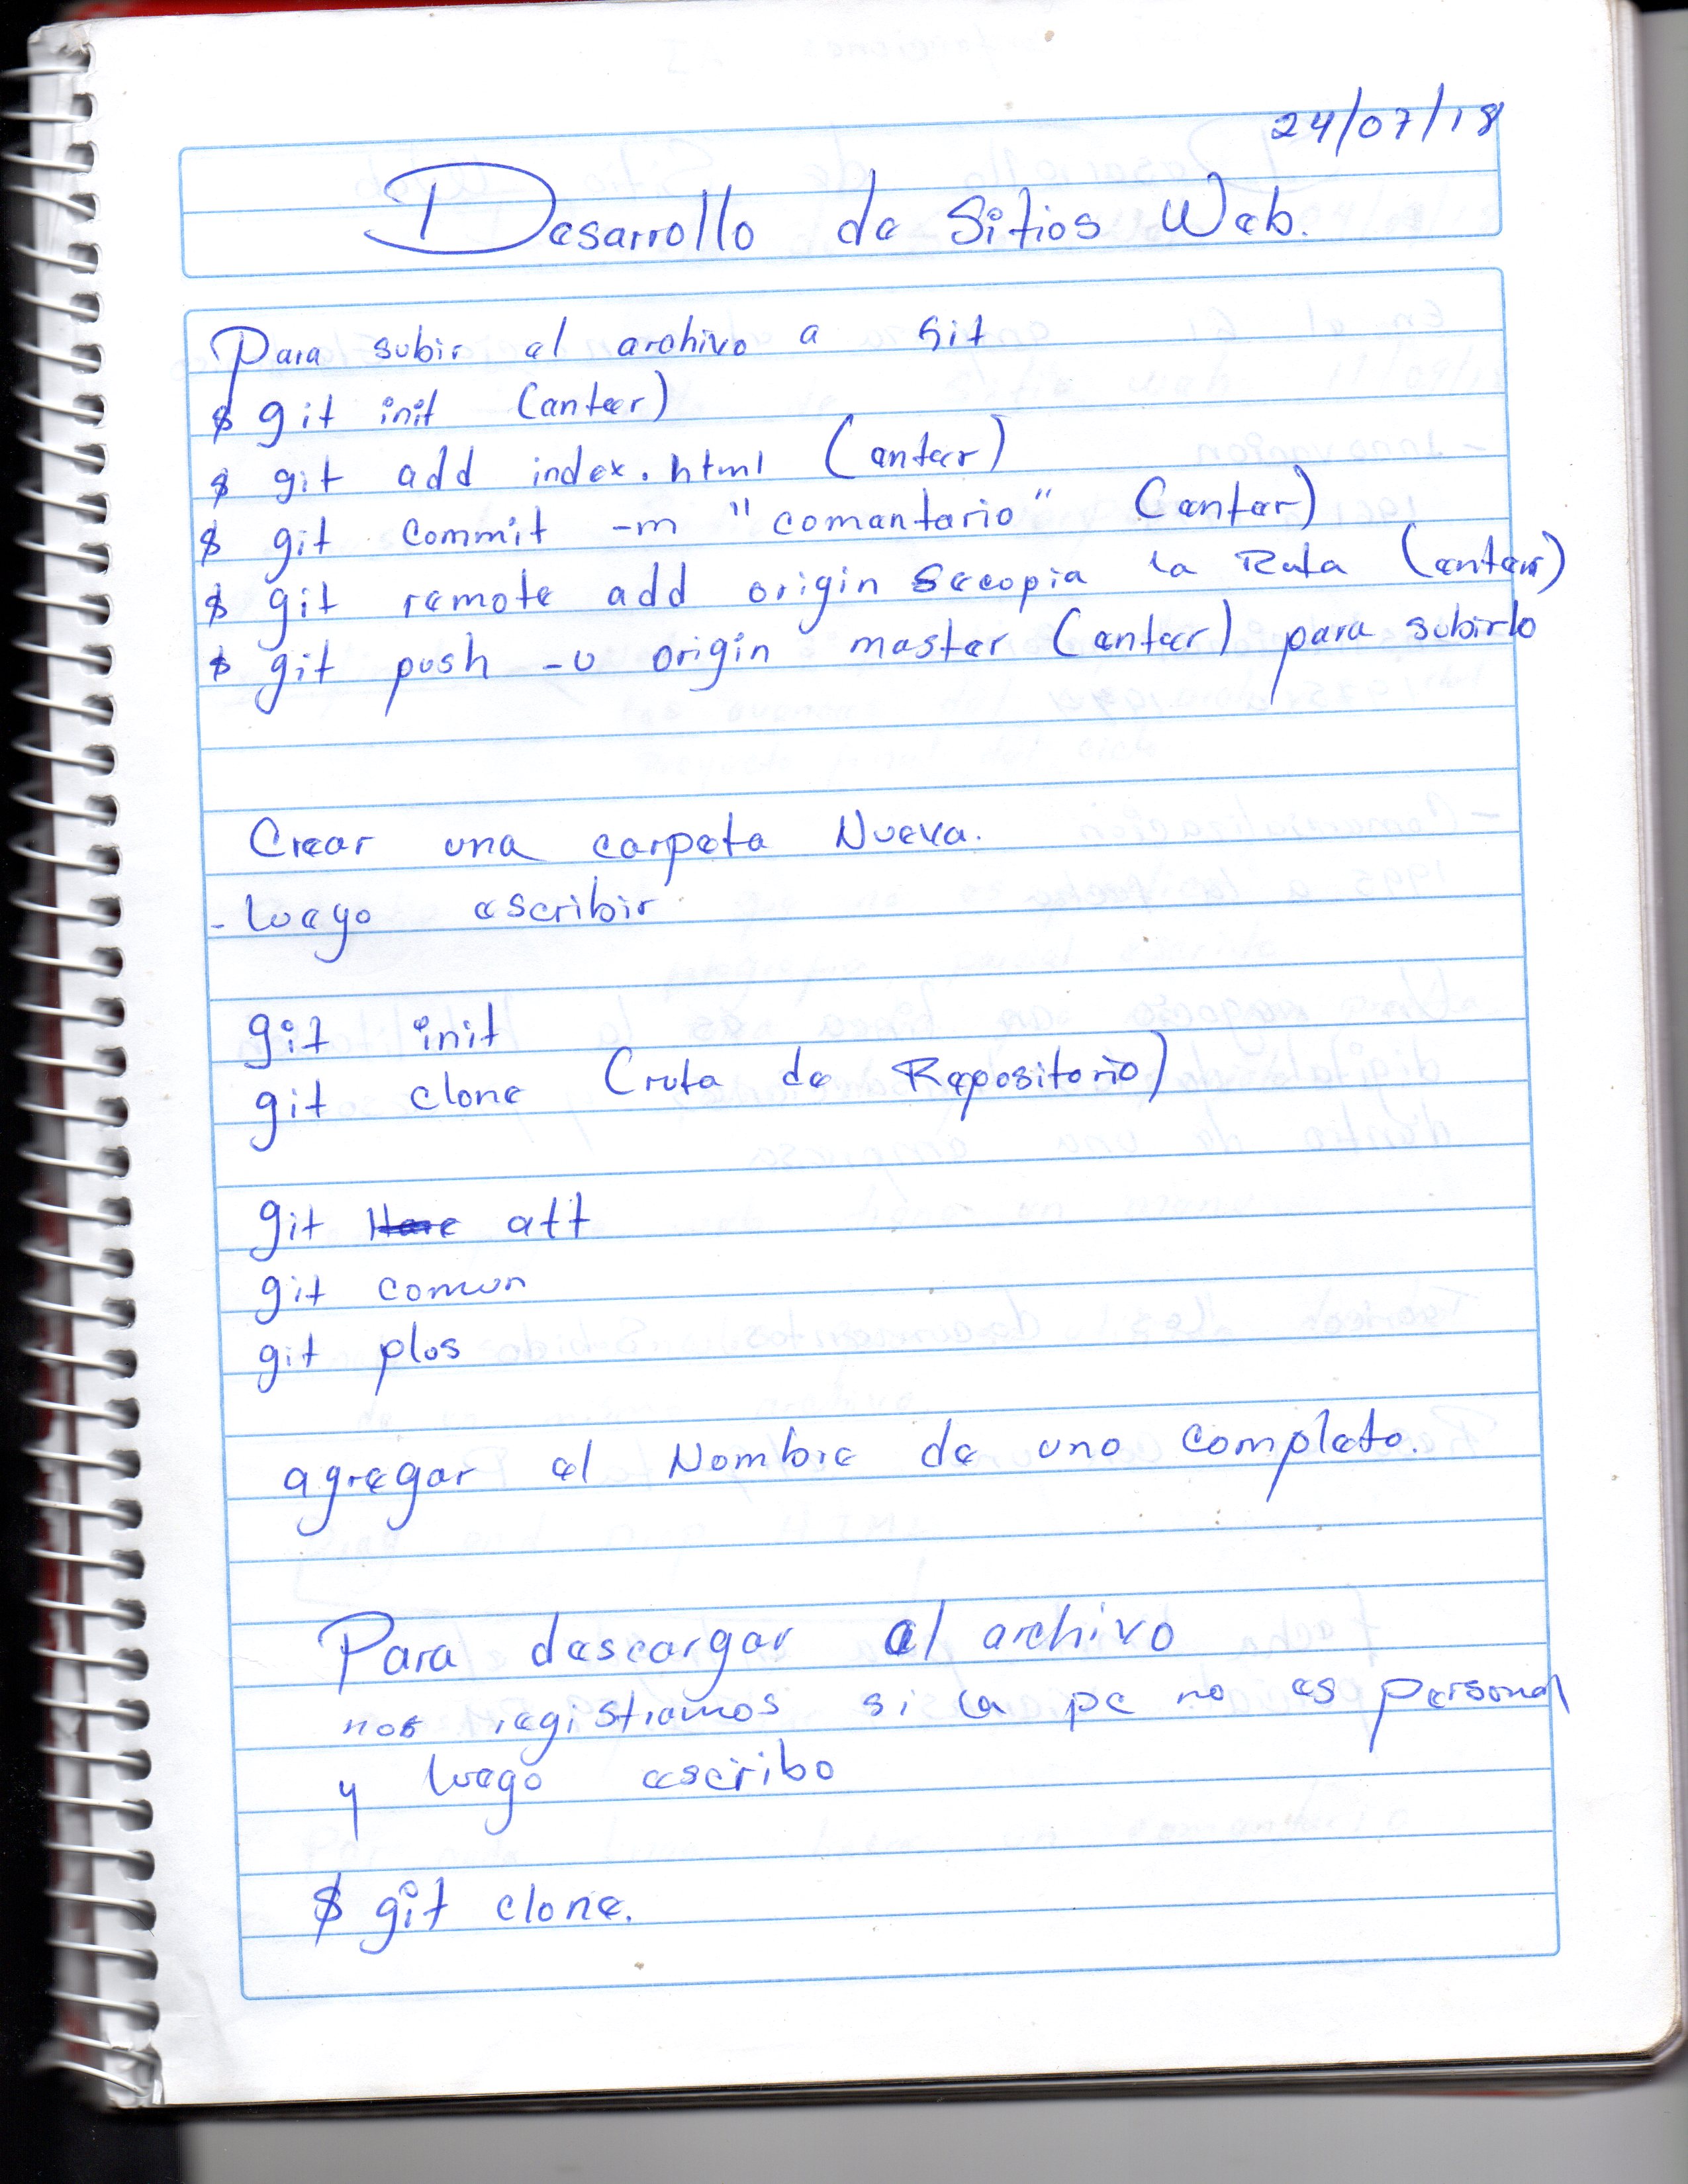 24/07/18
Desarrollo de Sitios Web.
Para subir el archivo a Git
$ git init (enter)
$ git add index.html (enter)
$ git commit -m "comentario" (enter)
$ git remote add origin se copia la Ruta (enter)
$ git push -u origin master (enter) para subirlo
Crear una carpeta Nueva.
- luego escribir
git init
git clone (ruta de Repositorio)
git att
git comun
git plos
agregar el Nombre de uno completo.
Para descargar el archivo
nos registramos si la pc no es personal
y luego escribo
$ git clone.